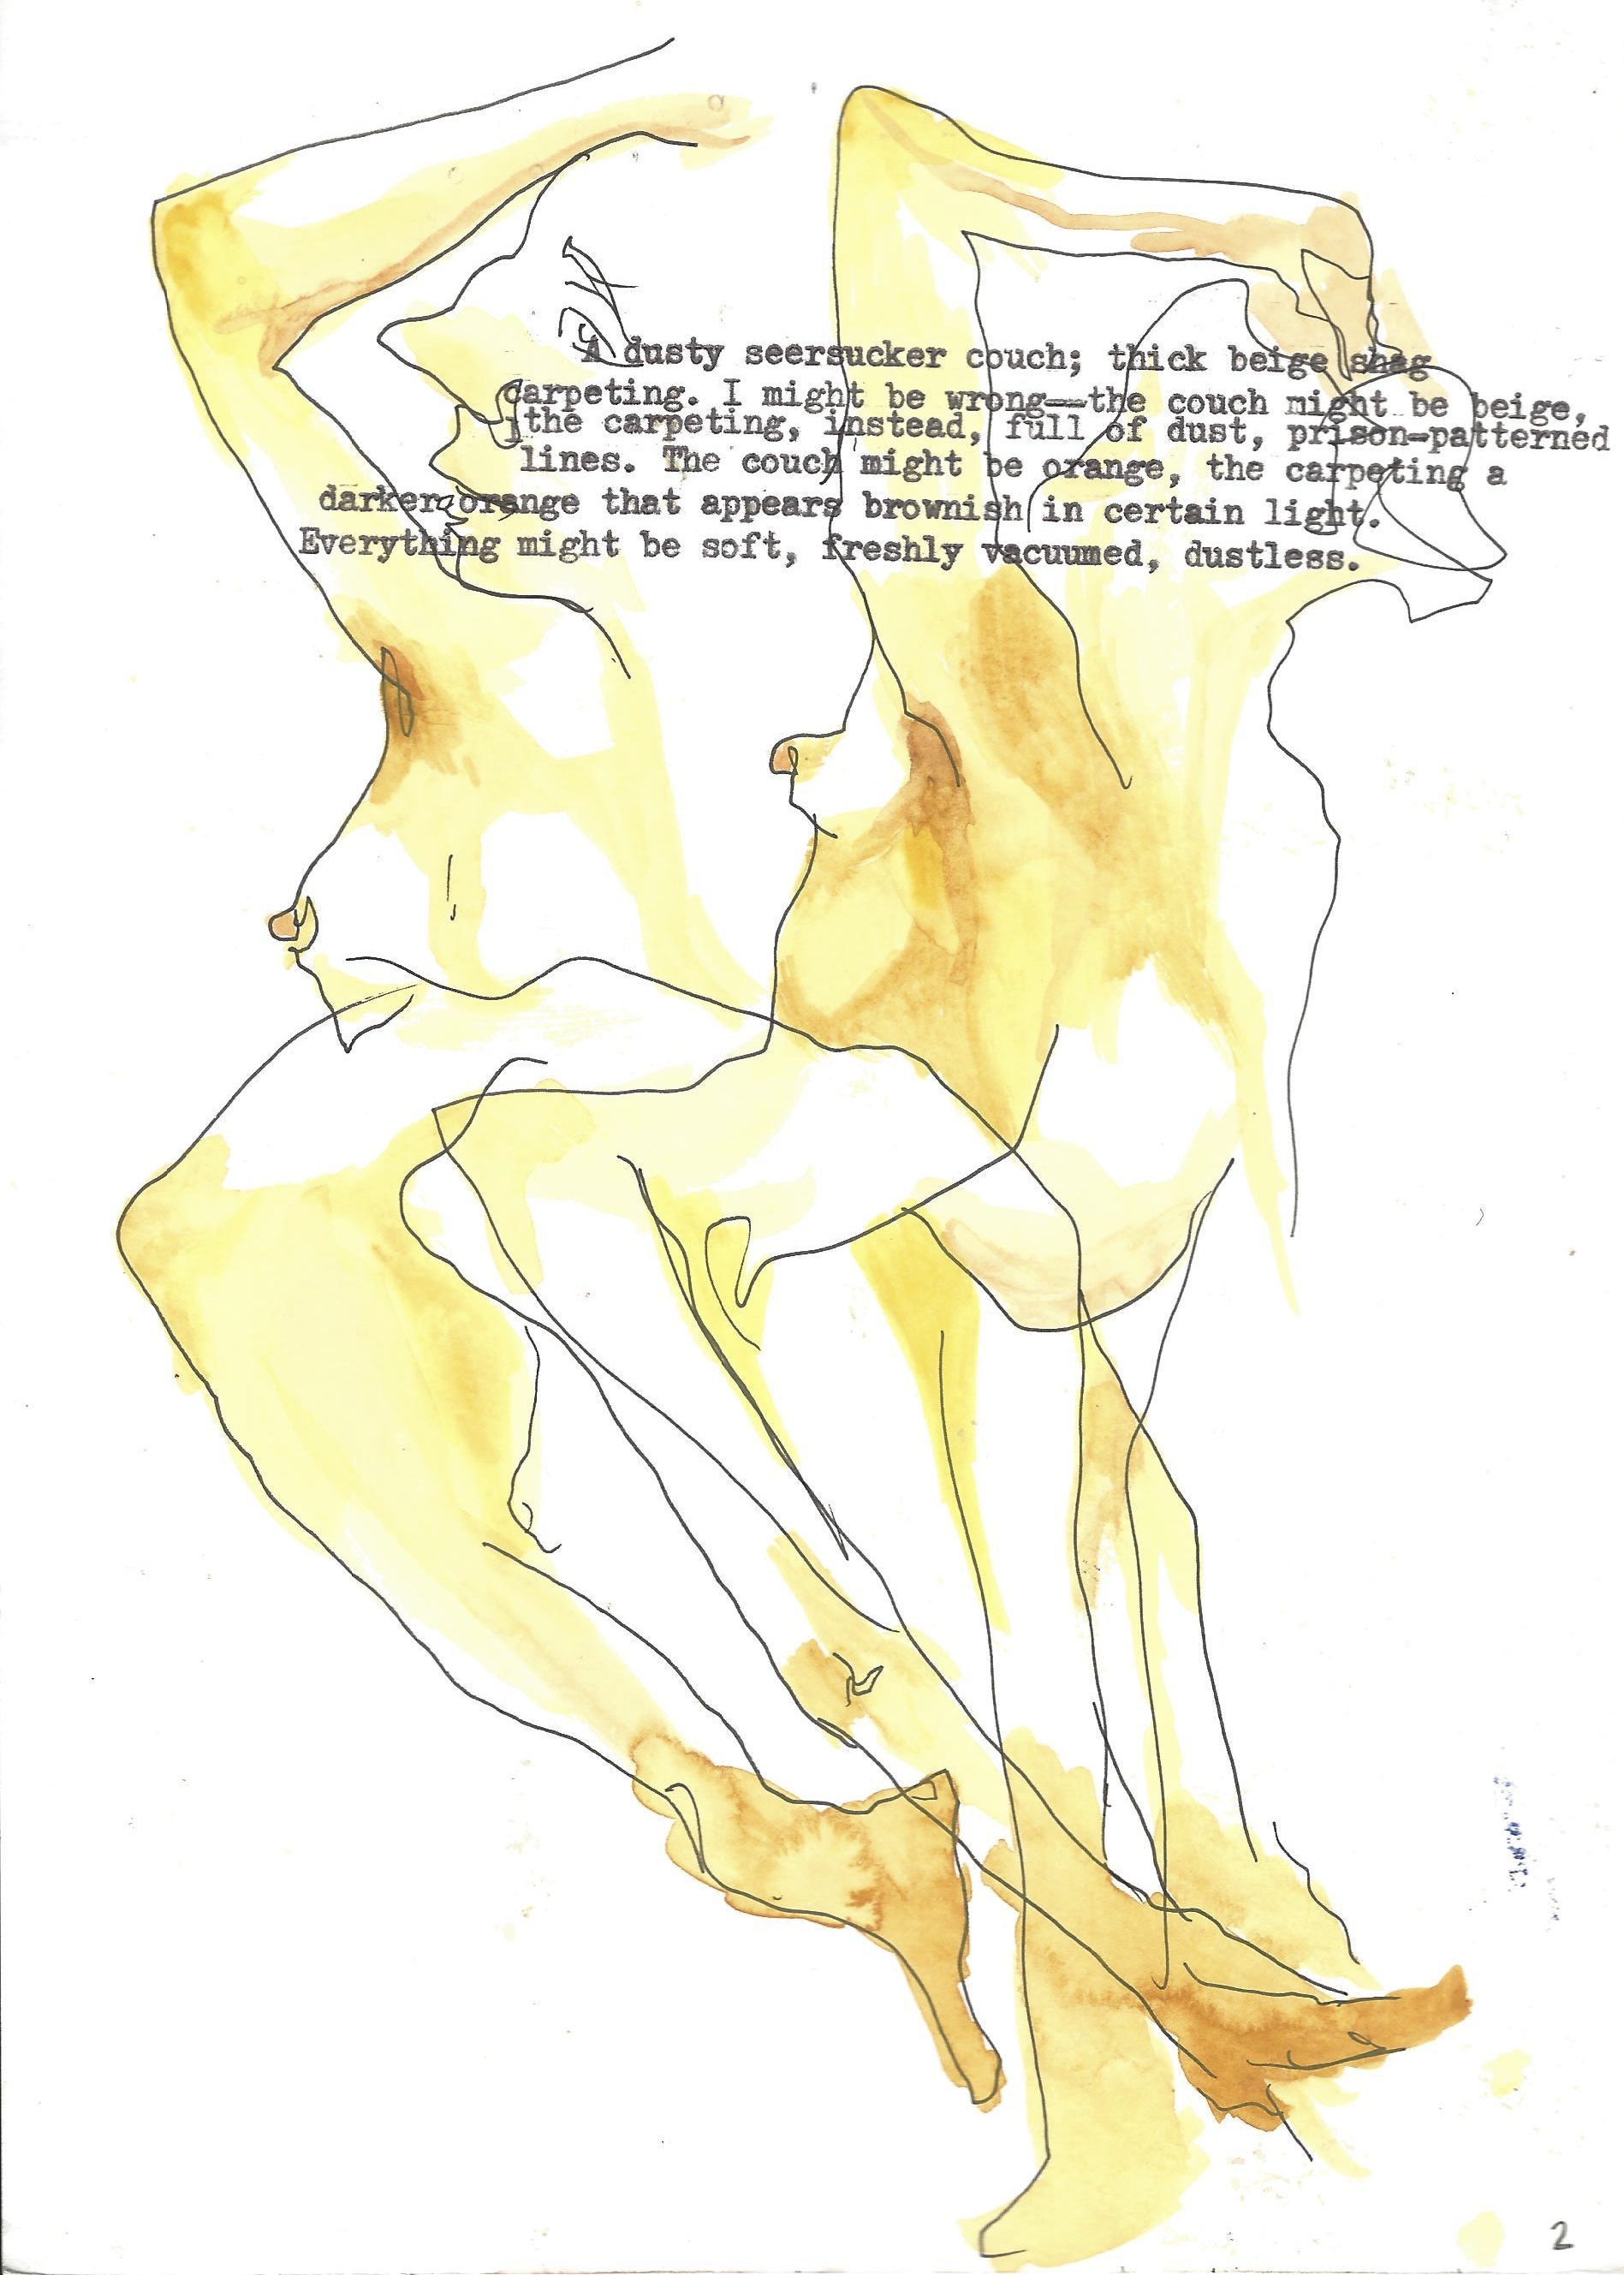 A dusty seersucker couch; thick beige shag
carpeting. I might be wrong--the couch might be beige,
the carpeting, instead, full of dust, prison-patterned
lines. The couch might be orange, the carpeting a
darker orange that appears brownish in certain light.
Everything might be soft, freshly vacuumed, dustless.
2